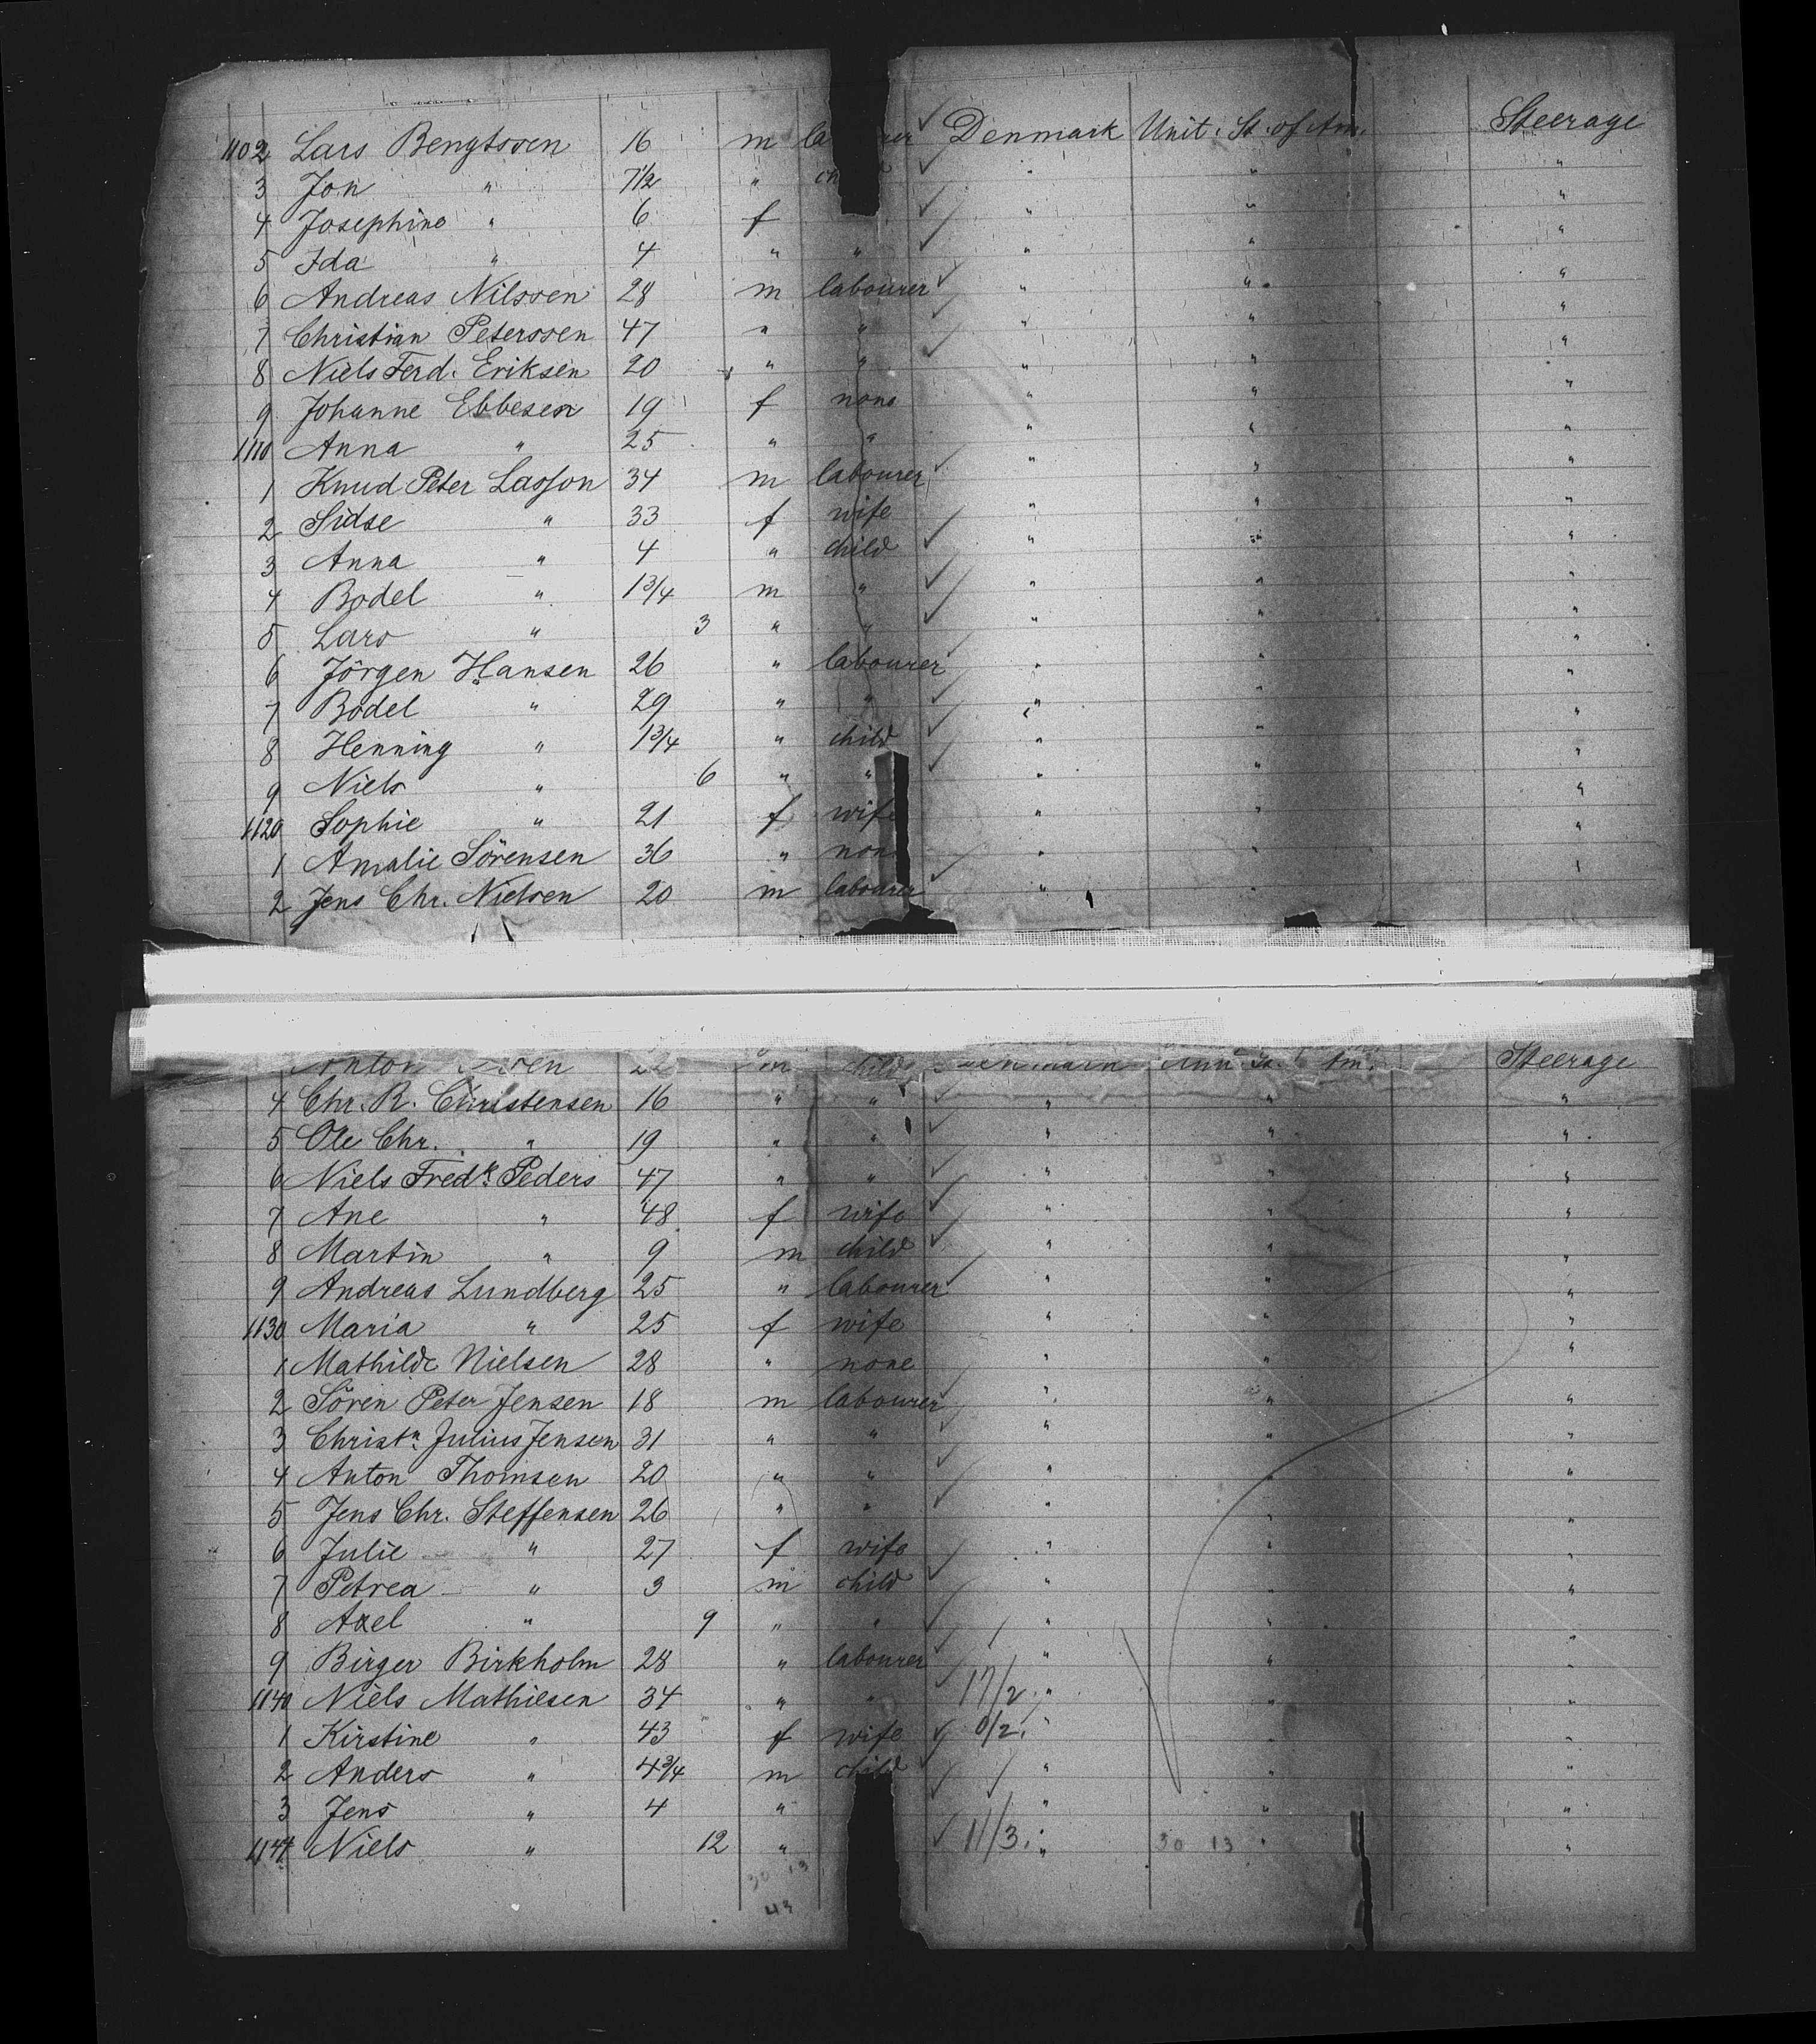 1102 Lars Bengtssen 16 m Denmark Unit. St. of Am. Steerage
3 Jon " 7 1/2 " " " "
4 Josephine " 6 f " " "
5 Ida " 4 " " " " "
6 Andreas Nilssen 28 m labourer " " "
7 Christian Peterssen 47 " " " " "
8 Niels Ferd. Eriksen 20 " " " " "
9 Johanne Ebbesen 19 f none " " "
1110 Anna " 25 " " " " "
1 Knud Peter Lasson 34 m labourer " " "
2 Sidse " 33 f wife " " "
3 Anna " 4 " child " " "
4 Bodel " 1 3/4 m " " " "
5 Lars " 3 " " " " "
6 Jörgen Hansen 26 " labourer " " "
7 Bodel " 29 " " " " "
8 Henning " 1 3/4 " child " " "
9 Niels " 6 " " " " "
1120 Sophie " 21 f wife " " "
1 Amalie Sörensen 36 " " " "
2 Jens Chr. Nielsen 20 m labourer " " "
22 m child Steerage
4 Chr. R. Christensen 16 " " " " "
5 Ole Chr. " 19 " " " " "
6 Niels Fredk. Peders 47 " " " " "
7 Ane " 48 f wife " " "
8 Martin " 9 m child " " "
9 Andreas Lundberg 25 " labourer " " "
1130 Maria " 25 f wife " " "
1 Mathilde Nielsen 28 " none " " "
2 Sören Peter Jensen 18 m labourer " " "
3 Christn. Julius Jensen 31 " " " " "
4 Anton Thomsen 20 " " " " "
5 Jens Chr. Steffensen 26 " " " " "
6 Julie " 27 f wife " " "
7 Petrea " 3 m child " " "
8 Axel " 9 " " " " "
9 Birger Birkholm 28 " labourer " " "
1140 Niels Mathiesen 34 " " 17/2 " " "
1 Kirstine " 43 f wife 0/2. " " "
2 Anders " 4 3/4 m child " " "
3 Jens " 4 " " " "
1144 Niels " 12 " 11/3. " 30 13 " "
30 13
43